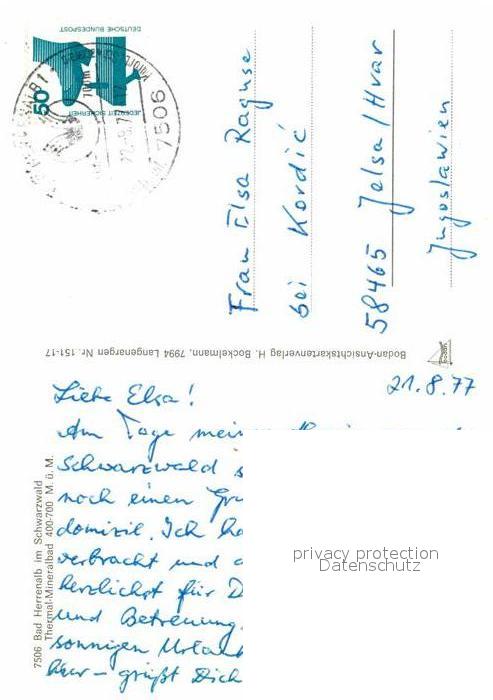 DEUTSCHE BUNDESPOST
JEDERZEIT SICHERHEIT
50
7506
Frau Elsa Raguse
bei Kordić
58465 Jelsa/Hvar
Jugoslawien
Bodan-Ansichtskartenverlag H. Bockelmann, 7994 Langenargen Nr. 151-17
21.8.77
Liebe Elsa!
Am Tage mein
Schwarzwald s
noch einen Gru
domizil. Ich ha
verbracht und
herzlichst für D
und Betreuung.
sonnigen Urlau
hier – grüßt Dich
7506 Bad Herrenalb im Schwarzwald
Thermal-Mineralbad 400-700 M. ü. M.
privacy protection
Datenschutz